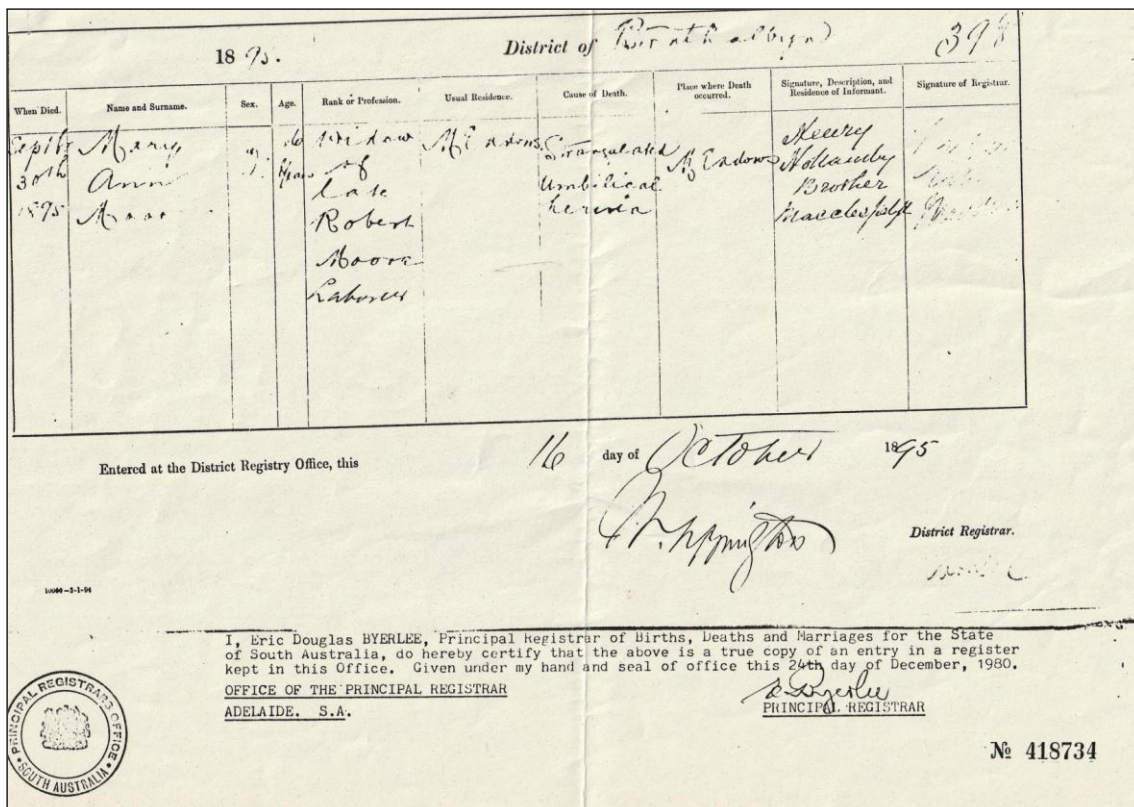 1895. District of Strathalbyn 398
When Died. Name and Surname. Sex. Age. Rank or Profession. Usual Residence. Cause of Death. Place where Death occurred. Signature, Description, and Residence of Informant. Signature of Registrar.
Septbr 30th 1895
Mary Ann
F.
years
Widow of late Robert Moore Laborer
Meadows
Strangulated Umbilical hernia
Meadows
Henry Hollamby Brother Macclesfield
Entered at the District Registry Office, this 16 day of October 1895
District Registrar.
10000-3-1-94
I, Eric Douglas BYERLEE, Principal Registrar of Births, Deaths and Marriages for the State
of South Australia, do hereby certify that the above is a true copy of an entry in a register
kept in this Office. Given under my hand and seal of office this 24th day of December, 1980.
OFFICE OF THE PRINCIPAL REGISTRAR
ADELAIDE. S.A.
PRINCIPAL REGISTRAR
PRINCIPAL REGISTRAR'S OFFICE
SOUTH AUSTRALIA
No 418734